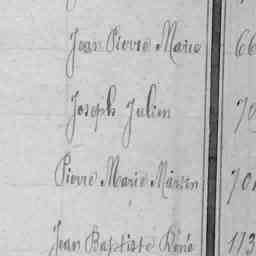 Jean Pierre Marie 66
Joseph Julien
Pierre Marie Martin
Jean Baptiste René 113